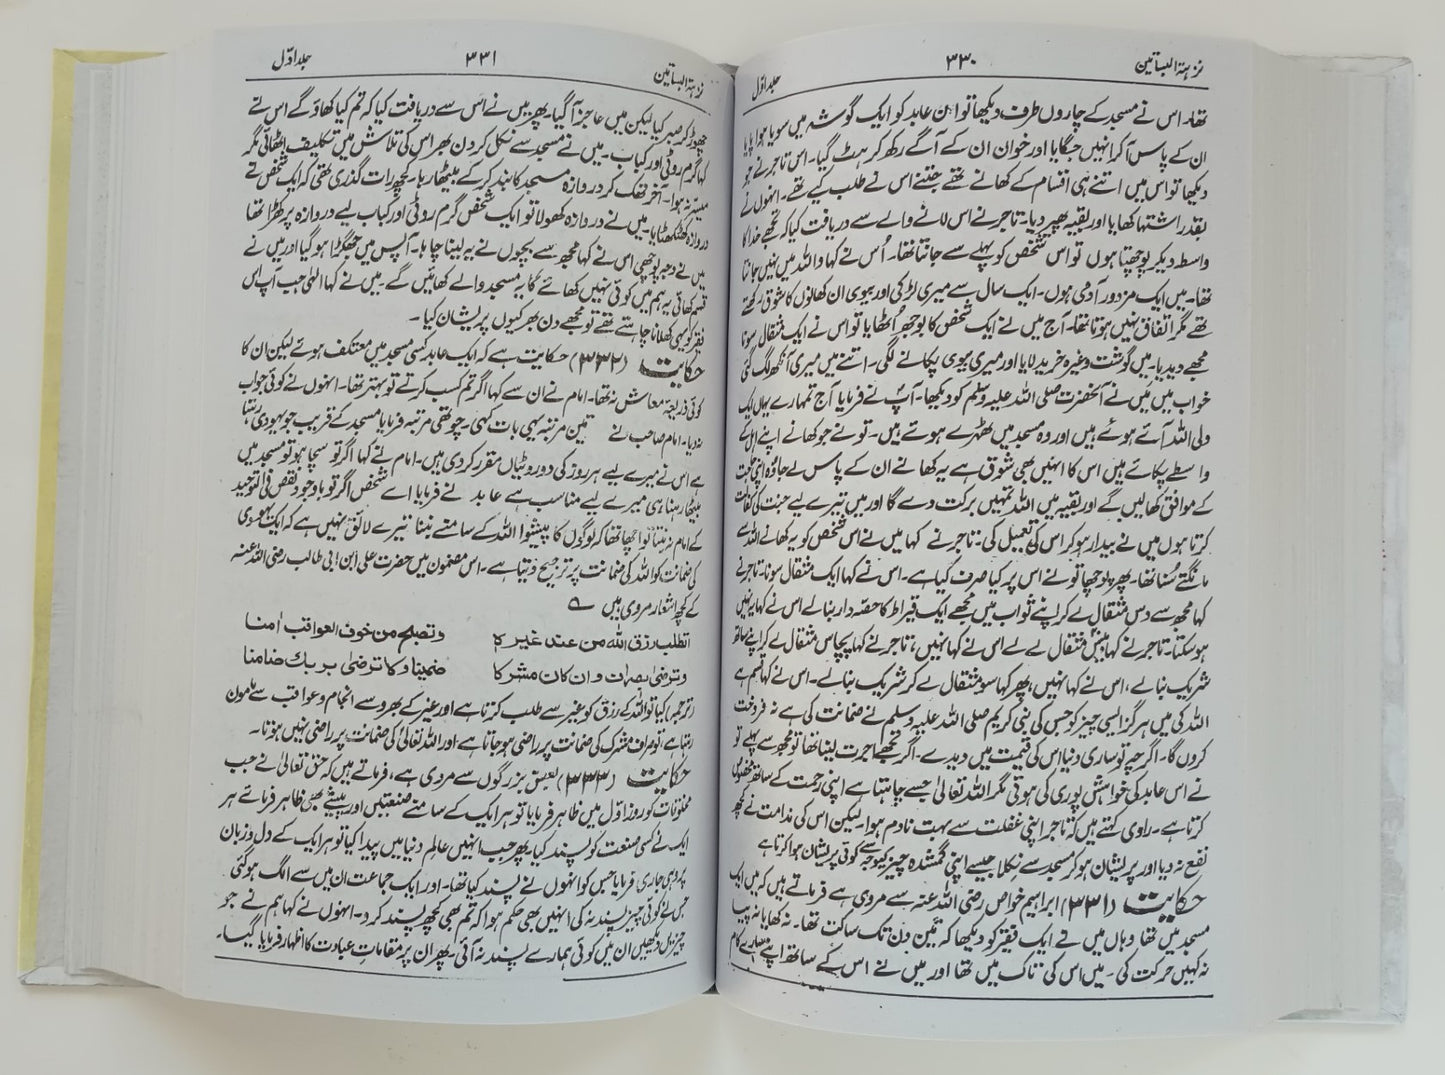 نزہۃ البساتین ۳۳۰ جلد اوّل
تھا۔ اس نے مسجد کے چاروں طرف دیکھا تو ان عابد کو ایک گوشہ میں سویا ہوا پایا
ان کے پاس آکر انہیں جگایا اور خوان ان کے آگے رکھ کر ہٹ گیا۔ اس تاجر نے جو
دیکھا تو اس میں اتنے ہی اقسام کے کھانے تھے جتنے اس نے طلب کیے تھے۔ انہوں نے
بقدر اشتہا کھایا اور بقیہ پھیر دیا۔ تاجر نے اس لانے والے سے دریافت کیا کہ تجھے خدا کا
واسطہ دیکر پوچھتا ہوں تو اس شخص کو پہلے سے جانتا تھا۔ اُس نے کہا واللہ میں نہیں جانتا
تھا۔ میں ایک مزدور آدمی ہوں۔ ایک سال سے میری لڑکی اور بیوی ان کھانوں کا شوق رکھتے
تھے مگر اتفاق نہیں ہوتا تھا۔ آج میں نے ایک شخص کا بوجھ اُٹھایا تو اس نے ایک مثقال سونا
مجھے دیدیا۔ میں گوشت وغیرہ خرید لایا اور میری بیوی پکانے لگی۔ اتنے میں میری آنکھ لگ گئی
خواب میں میں نے آنحضرت صلی اللہ علیہ وسلم کو دیکھا۔ آپ نے فرمایا آج تمہارے یہاں ایک
ولی اللہ آئے ہوئے ہیں اور وہ مسجد میں ٹھہرے ہوئے ہیں۔ تو نے جو کھانے اپنے اہل کے
واسطے پکائے ہیں اس کا انہیں بھی شوق ہے یہ کھانے ان کے پاس لے جاؤ وہ اپنی حاجت
کے موافق کھالیں گے اور بقیہ میں اللہ تمہیں برکت دے گا اور میں تیرے لیے جنت کی کفالت
کرتا ہوں میں نے بیدار ہوکر اس کی تعمیل کی۔ تاجر نے کہا میں نے اس شخص کو یہ کھانے اللہ سے
مانگتے سُنا تھا۔ پھر پوچھا تو نے اس پر کیا صرف کیا ہے۔ اس نے کہا ایک مثقال سونا۔ تاجر نے
کہا مجھ سے دس مثقال لے کر اپنے ثواب میں مجھے ایک قیراط کا حصّہ دار بنالے اس نے کہا یہ نہیں
ہوسکتا۔ تاجر نے کہا بیس مثقال لے لے اس نے کہا نہیں، تاجر نے کہا پچاس مثقال لے کر اپنے ساتھ
شریک بنالے، اس نے کہا نہیں، پھر کہا سو مثقال لے کر شریک بنالے۔ اس نے کہا قسم ہے
اللہ کی میں ہرگز ایسی چیز کو جس کی نبی کریم صلی اللہ علیہ وسلم نے ضمانت کی ہے نہ فروخت
کروں گا۔ اگرچہ تو ساری دنیا اس کی قیمت میں دیدے۔ اگر تجھے اجرت لینا تھا تو مجھ سے پہلے تو
نے اس عابد کی خواہش پوری کی ہوتی مگر اللہ تعالیٰ جسے چاہتا ہے اپنی رحمت کے ساتھ مخصوص
کرتا ہے۔ راوی کہتے ہیں کہ تاجر اپنی غفلت سے بہت نادم ہوا۔ لیکن اس کی ندامت نے کچھ
نفع نہ دیا اور پریشان ہوکر مسجد سے نکلا جیسے اپنی گمشدہ چیز کیوجہ سے کوئی پریشان ہوا کرتا ہے
حکایت (۳۳۱) ابراہیم خواص رضی اللہ عنہ سے مروی ہے فرماتے ہیں کہ میں ایک
مسجد میں تھا وہاں میں نے ایک فقیر کو دیکھا کہ تین دن تک ساکت تھا۔ نہ کھایا نہ پیا
نہ کہیں حرکت کی۔ میں اس کی تاک میں تھا اور میں نے اس کے ساتھ اپنے سارے کام
نزہۃ البساتین ۳۳۱ جلد اوّل
چھوڑ کر صبر کیا لیکن میں عاجز آ گیا۔ پھر میں نے اس سے دریافت کیا کہ تم کیا کھاؤ گے اس نے
کہا گرم روٹی اور کباب۔ میں نے مسجد سے نکل کر دن بھر اس کی تلاش میں تکلیف اٹھائی مگر
میسر نہ ہوا۔ آخر تھک کر دروازہ مسجد کا بند کر کے بیٹھا رہا۔ کچھ رات گذری تھی کہ ایک شخص نے
دروازہ کھٹکھٹایا۔ میں نے دروازہ کھولا تو ایک شخص گرم روٹی اور کباب لیے دروازہ پر کھڑا تھا
میں نے وجہ پوچھی اس نے کہا مجھ سے بچوں نے یہ لینا چاہا۔ آپس میں جھگڑا ہوگیا اور میں نے
قسم کھائی یہ ہم میں کوئی نہیں کھائے گا یہ مسجد والے کھائیں گے۔ میں نے کہا الٰہی جب آپ اس
فقیر کو یہی کھلانا چاہتے تھے تو مجھے دن بھر کیوں پریشان کیا۔
حکایت (۳۳۲) حکایت ہے کہ ایک عابد کسی مسجد میں معتکف ہوئے لیکن ان کا
کوئی ذریعہ معاش نہ تھا۔ امام نے ان سے کہا اگر تم کسب کرتے تو بہتر تھا۔ انہوں نے کوئی جواب
نہ دیا۔ امام صاحب نے تین مرتبہ یہی بات کہی۔ چوتھی مرتبہ فرمایا مسجد کے قریب جو یہودی رہتا
ہے اس نے میرے لیے ہر روز کی دو روٹیاں مقرر کردی ہیں۔ امام نے کہا اگر تو سچا ہو تو مسجد میں
بیٹھا رہنا ہی میرے لیے مناسب ہے عابد نے فرمایا اے شخص اگر تو باوجود نقص فی التوحید
کے امام نہ بنتا تو اچھا تھا کہ لوگوں کا پیشوا اللہ کے سامنے بننا تیرے لائق نہیں ہے کہ ایک یہودی
کی ضمانت کو اللہ کی ضمانت پر ترجیح دیتا ہے۔ اس مضمون میں حضرت علی ابن ابی طالب رضی اللہ عنہ
کے کچھ اشعار مروی ہیں ؎
اتطلب رزق اللہ من عند غیرکا وتصبح من خوف العواقب اٰمنا
وترضٰی بصراف وان کان مشرکا ضمینا وکا ترضیٰ بربك ضامنا
(ترجمہ) کیا تو اللہ کے رزق کو غیر سے طلب کرتا ہے اور غیر کے بھروسے انجام و عواقب سے مامون
رہتا ہے، تو صراف مشرک کی ضمانت پر راضی ہوجاتا ہے اور اللہ تعالیٰ کی ضمانت پر راضی نہیں ہوتا۔
حکایت (۳۳۳) بعض بزرگوں سے مروی ہے، فرماتے ہیں کہ حق تعالیٰ نے جب
مخلوقات کو روز اول میں ظاہر فرمایا تو ہر ایک کے سامنے صنعتیں اور پیشے بھی ظاہر فرمائے ہر
ایک نے کسی صنعت کو پسند کیا۔ پھر جب انہیں عالم دنیا میں پیدا کیا تو ہر ایک کے دل و زبان
پر وہی جاری فرمایا جس کو انہوں نے پسند کیا تھا۔ اور ایک جماعت ان میں سے الگ ہوگئی
جس نے کوئی چیز پسند نہ کی انہیں بھی حکم ہوا کہ تم بھی کچھ پسند کرو۔ انہوں نے کہا ہم نے جو
چیزیں دیکھیں ان میں کوئی ہمارے پسند نہ آئی۔ پھر ان پہ مقامات عبادت کا اظہار فرمایا گیا۔